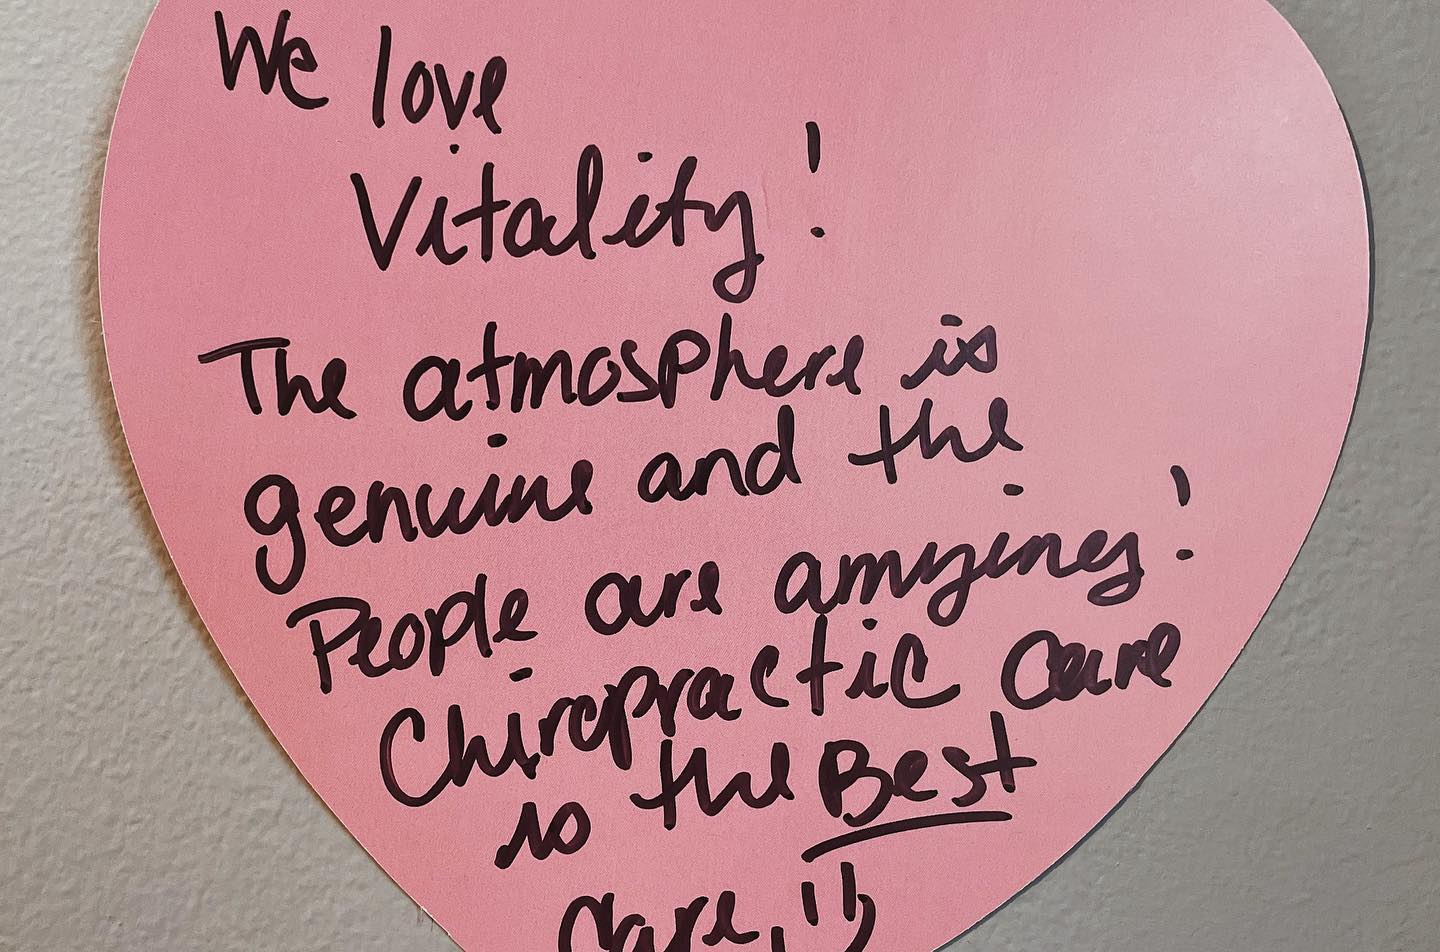 We love
Vitality!
The atmosphere is
genuine and the
People are amazing!
Chiropractic Care
is the Best
Care, !!